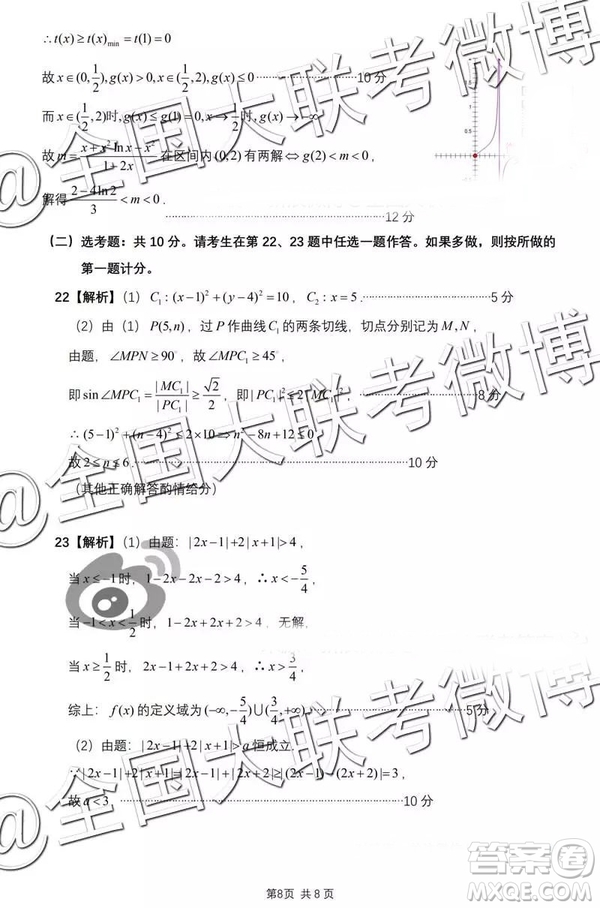 ∴t(x)≥t(x)min=t(1)=0
故x∈(0,1/2),g(x)>0,x∈(1/2,2),g(x)≤0 ………………10分
而x∈(1/2,2)时,g(x)≤g(1)=0,x→1/2时,g(x)→-∞
故m=(x+x²lnx-x²)/(1+2x)在区间内(0,2)有两解⇔g(2)<m<0,
解得(2-4ln2)/3<m<0. ………………12分
(二) 选考题:共10分。请考生在第22、23题中任选一题作答。如果多做,则按所做的
第一题计分。
22【解析】(1) C₁:(x-1)²+(y-4)²=10, C₂:x=5. ………………5分
(2) 由(1) P(5,n),过P作曲线C₁的两条切线,切点分别记为M,N,
由题,∠MPN≥90°,故∠MPC₁≥45°,
即sin∠MPC₁=|MC₁|/|PC₁|≥√2/2,即|PC₁|²≤2|MC₁|², ………………8分
∴(5-1)²+(n-4)²≤2×10⇒n²-8n+12≤0,
故2≤n≤6. ………………10分
(其他正确解答酌情给分)
23【解析】(1)由题:|2x-1|+2|x+1|>4,
当x≤-1时,1-2x-2x-2>4,∴x<-5/4,
当-1<x<1/2时,1-2x+2x+2>4,无解,
当x≥1/2时,2x-1+2x+2>4,∴x>3/4,
综上:f(x)的定义域为(-∞,-5/4)∪(3/4,+∞). ………………5分
(2)由题:|2x-1|+2|x+1|>a恒成立.
∵|2x-1|+2|x+1|=|2x-1|+|2x+2|≥|(2x-1)-(2x+2)|=3,
故a<3. ………………10分
第8页 共8页
@全国大联考微博
@全国大联考微博
@全国大联考微博
答案圈
MXQE.COM